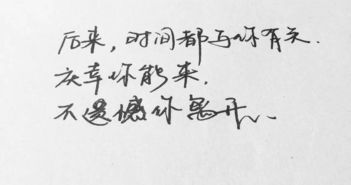 后来，时间都与你有关.
庆幸你能来.
不遗憾你离开、、